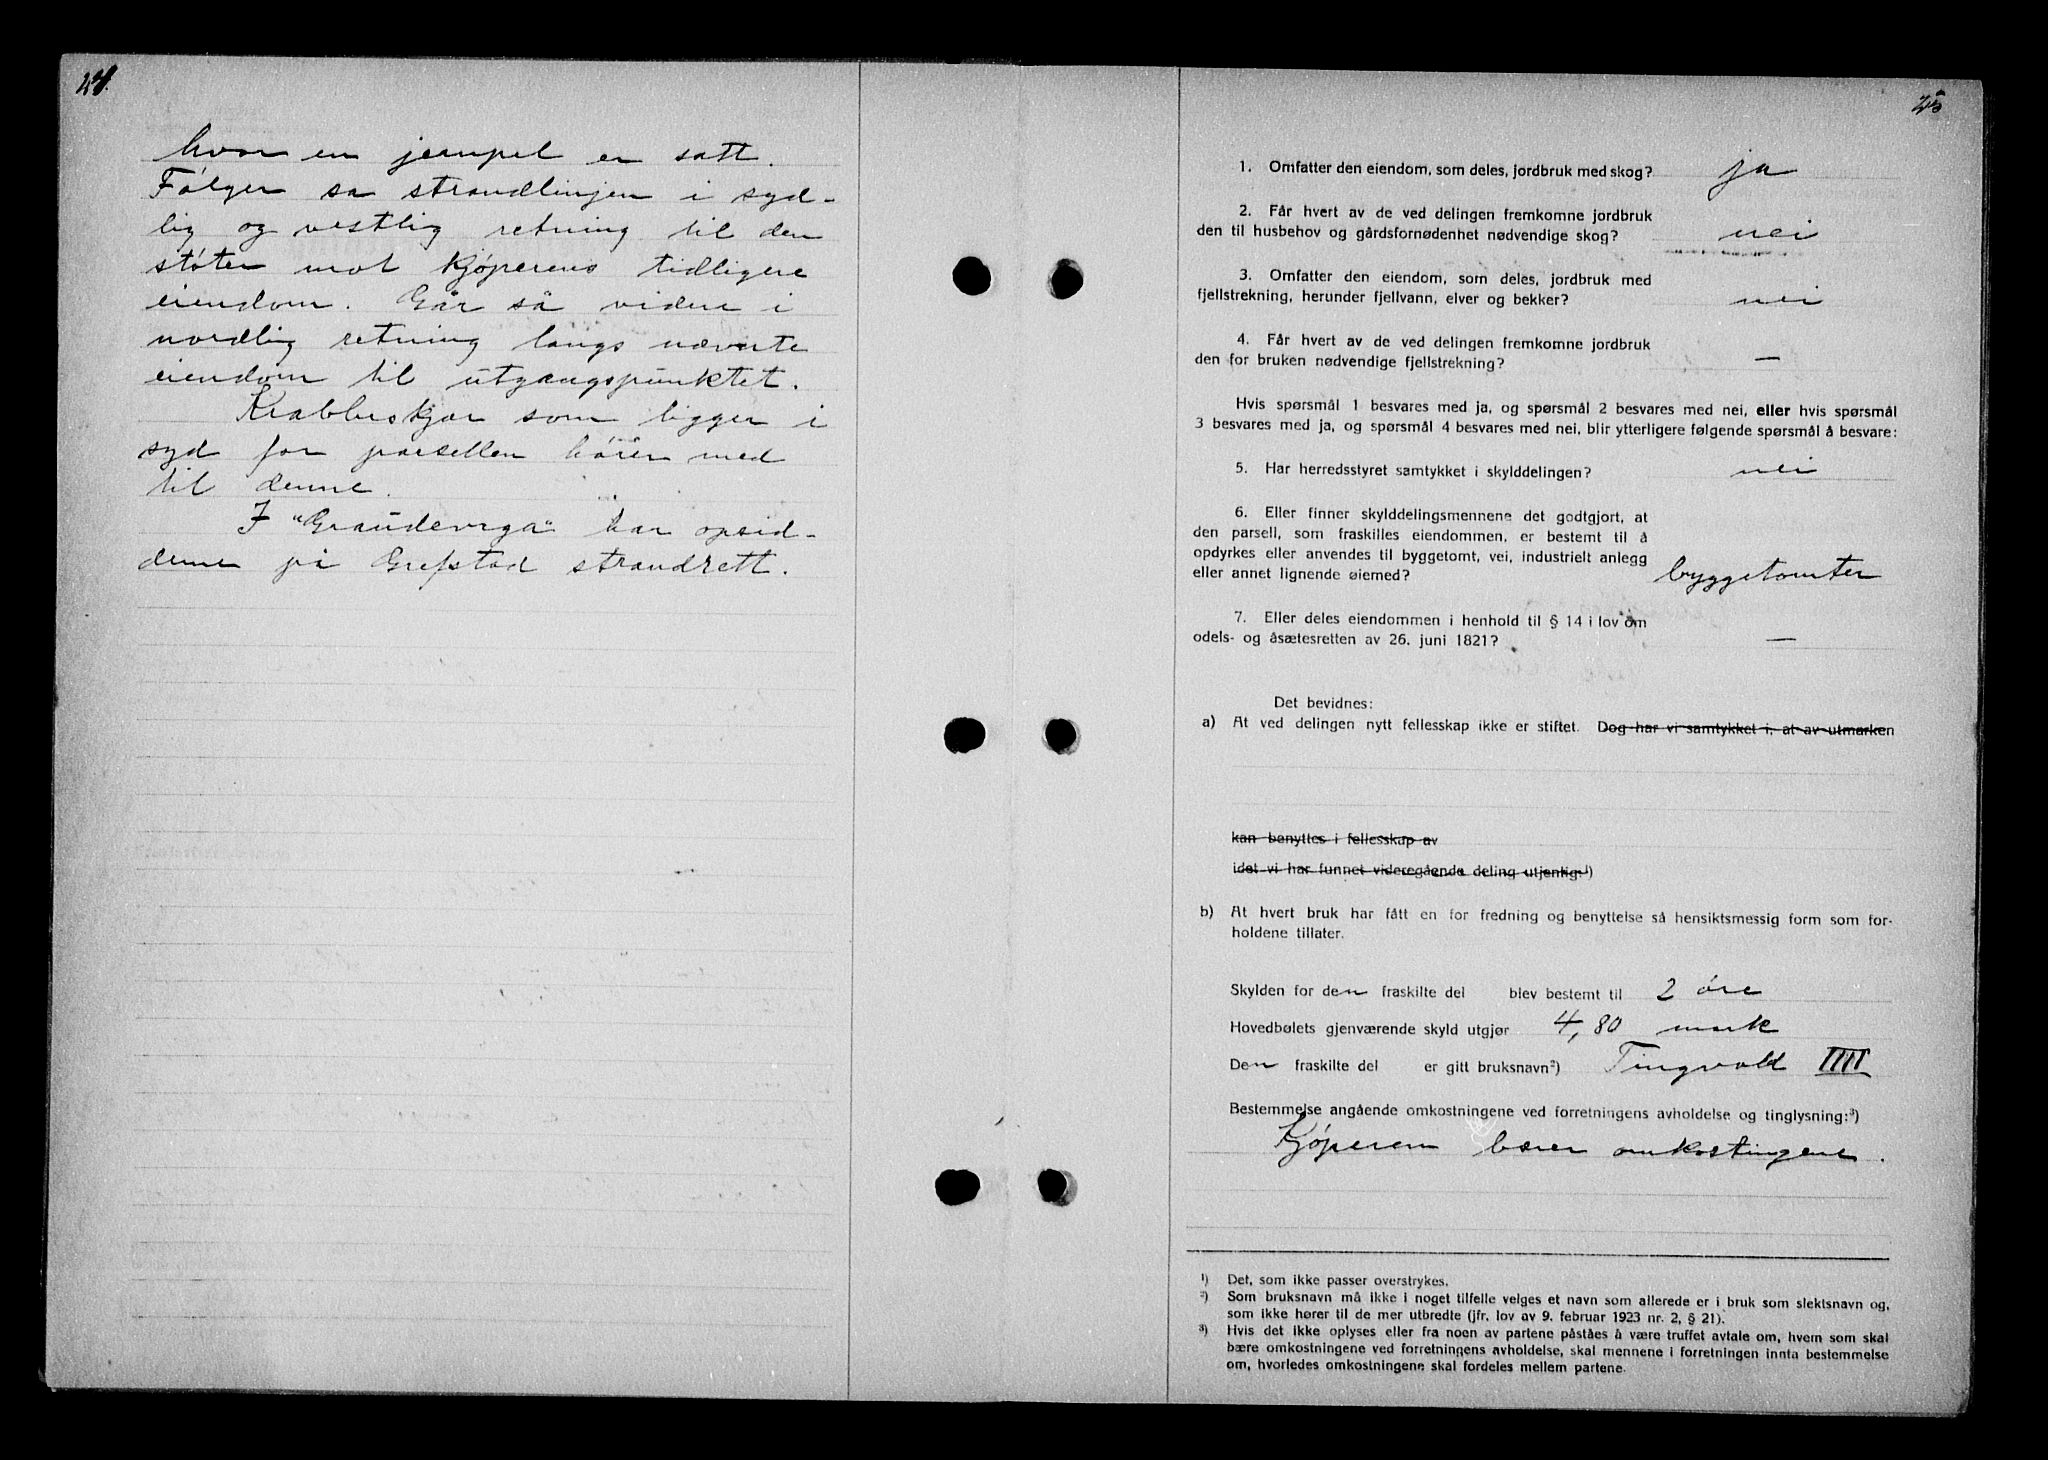 24.
hvor en jernpel er satt.
Følger sa strandlinjen i syd-
lig og vestlig retning til den
støter mot kjøperens tidligere
eiendom. Går så videre i
nordlig retning langs nevnte
eiendom til utgangspunktet.
Krabbeskjær som ligger i
syd for parsellen hører med
til denne.
I "Graudeviga" har opsid-
dene på Grefstad strandrett.
25
1. Omfatter den eiendom, som deles, jordbruk med skog? ja
2. Får hvert av de ved delingen fremkomne jordbruk
den til husbehov og gårdsfornødenhet nødvendige skog? nei
3. Omfatter den eiendom, som deles, jordbruk med
fjellstrekning, herunder fjellvann, elver og bekker? nei
4. Får hvert av de ved delingen fremkomne jordbruk
den for bruken nødvendige fjellstrekning? —
Hvis spørsmål 1 besvares med ja, og spørsmål 2 besvares med nei, eller hvis spørsmål
3 besvares med ja, og spørsmål 4 besvares med nei, blir ytterligere følgende spørsmål å besvare:
5. Har herredsstyret samtykket i skylddelingen? nei
6. Eller finner skylddelingsmennene det godtgjort, at
den parsell, som fraskilles eiendommen, er bestemt til å
opdyrkes eller anvendes til byggetomt, vei, industrielt anlegg
eller annet lignende øiemed? byggetomter
7. Eller deles eiendommen i henhold til § 14 i lov om
odels- og åsætesretten av 26. juni 1821? —
Det bevidnes:
a) At ved delingen nytt fellesskap ikke er stiftet. Dog har vi samtykket i, at av utmarken
kan benyttes i fellesskap av
idet vi har funnet videregående deling utjenlig.¹)
b) At hvert bruk har fått en for fredning og benyttelse så hensiktsmessig form som for-
holdene tillater.
Skylden for den fraskilte del blev bestemt til 2 øre
Hovedbølets gjenværende skyld utgjør 4,80 mark
Den fraskilte del er gitt bruksnavn²) Tingvold IIII
Bestemmelse angående omkostningene ved forretningens avholdelse og tinglysning:³)
Kjøperen bærer omkostingene.
¹) Det, som ikke passer overstrykes.
²) Som bruksnavn må ikke i noget tilfelle velges et navn som allerede er i bruk som slektsnavn og,
som ikke hører til de mer utbredte (jfr. lov av 9. februar 1923 nr. 2, § 21).
³) Hvis det ikke oplyses eller fra noen av partene påståes å være truffet avtale om, hvem som skal
bære omkostningene ved forretningens avholdelse, skal mennene i forretningen innta bestemmelse
om, hvorledes omkostningene skal fordeles mellem partene.